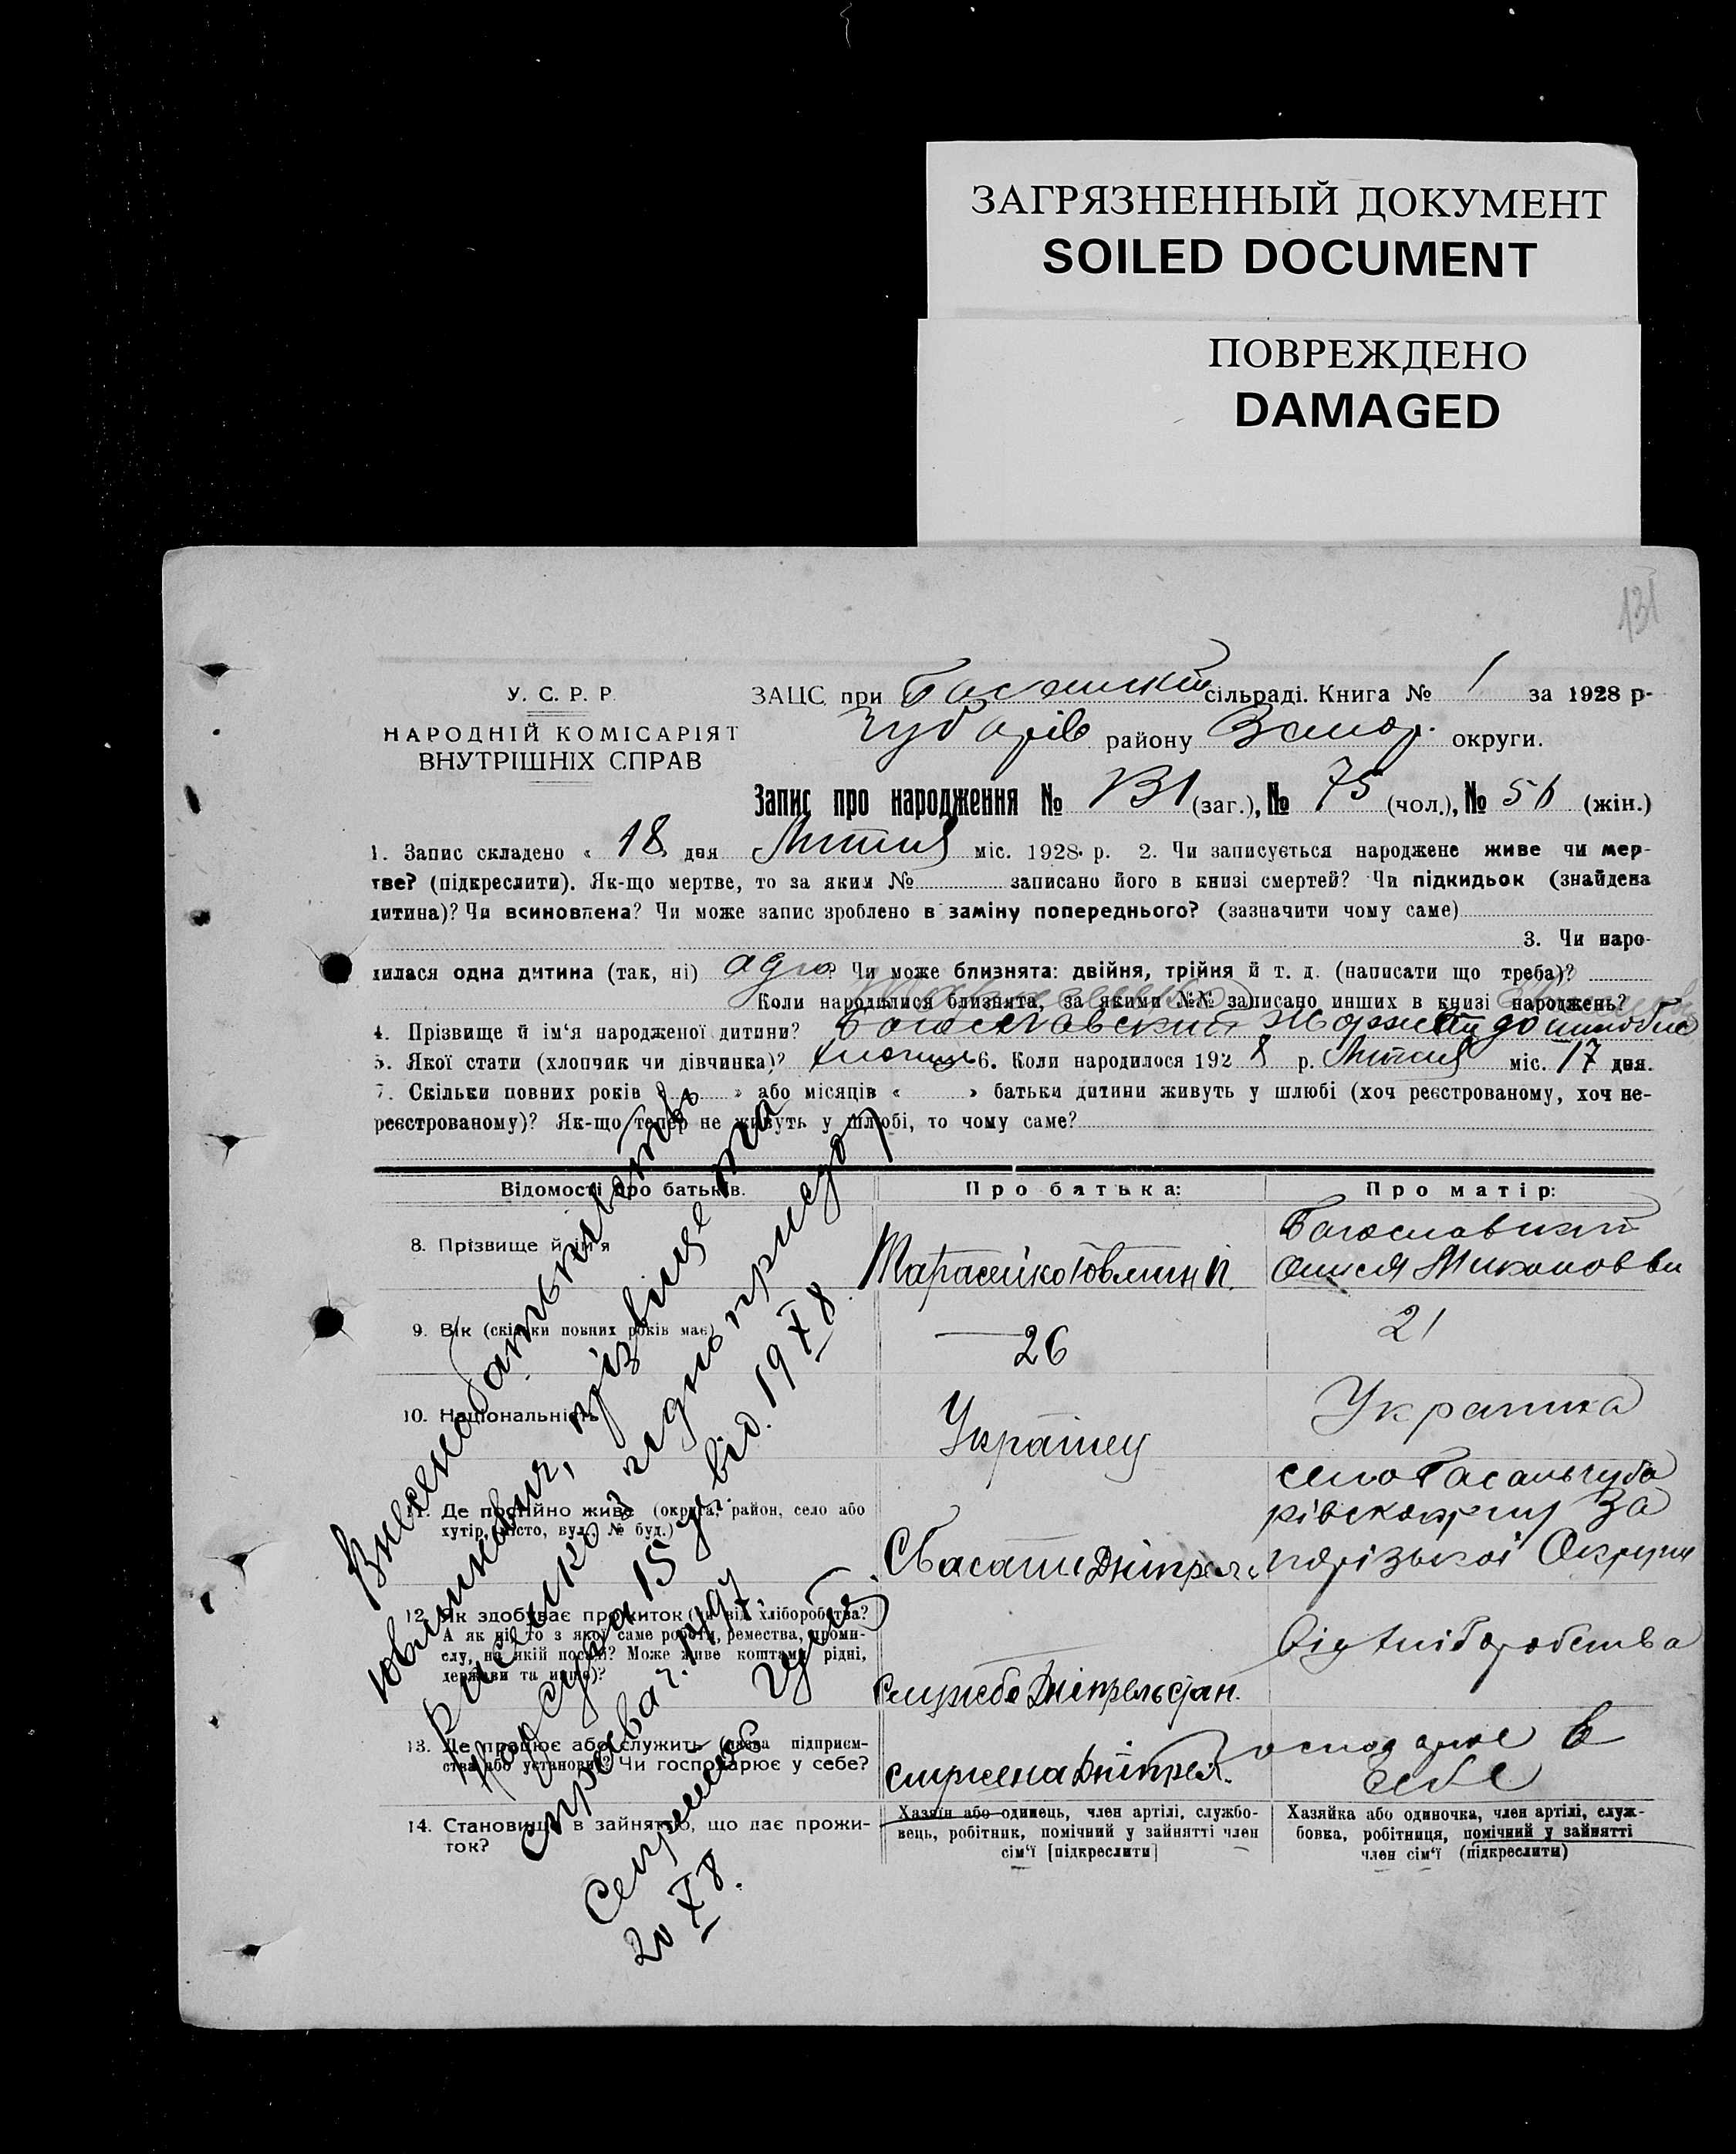 ЗАГРЯЗНЕННЫЙ ДОКУМЕНТ
SOILED DOCUMENT
ПОВРЕЖДЕНО
DAMAGED
131
У. С. Р. Р.
НАРОДНІЙ КОМІСАРІЯТ
ВНУТРІШНІХ СПРАВ
ЗАЦС при Басанській сільраді. Книга № 1 за 1928 р.
Чубарів району Запор. округи.
Запис про народження № 131 (заг.), № 75 (чол.), № 56 (жін.)
1. Запис складено « 18 » дня Липня міс. 1928 р. 2. Чи записується народжене живе чи мер-
тве? (підкреслити). Як-що мертве, то за яким № записано його в книзі смертей? Чи підкидьок (знайдена
дитина)? Чи всиновлена? Чи може запис зроблено в заміну попереднього? (зазначити чому саме)
3. Чи наро-
дилася одна дитина (так, ні) одно? Чи може близнята: двійня, трійня й т. д. (написати що треба)?
Коли народилися близнята, за якими №№ записано инших в книзі народжень?
4. Прізвище й ім'я народженої дитини? Богославский
5. Якої стати (хлопчик чи дівчинка)? хлопчик 6. Коли народилося 1928 р. Липня міс. 17 дня.
7. Скільки повних років « » або місяців « » батьки дитини живуть у шлюбі (хоч реєстрованому, хоч не-
реєстрованому)? Як-що тепер не живуть у шлюбі, то чому саме?
Відомості про батьків.
Про батька:
Про матір:
8. Прізвище й ім'я
Тарасенко Товмин П.
Богославский
Олися Миконовви
9. Вік (скільки повних років має)
26
21
10. Національність
Українец
Украінка
11. Де постійно живе (округа, район, село або
хутір, місто, вул. № буд.)
С Басань Дніпрел.
село Басань чуба
рівского рну За
порізької Округи
12. Як здобуває прожиток (чи від хліборобства?
А як ні, то з якої саме роботи, ремества, проми-
слу, на якій посаді? Може живе коштами рідні,
держави та инше)?
Служба Дніпрельстан.
Від хліборобства
13. Де працює або служить (назва підприєм-
ства або установи)? Чи господарює у себе?
служе на Дніпрел.
господарює в
себе
14. Становище в зайнятю, що дає прожи-
ток?
Хазяїн або одинець, член артілі, службо-
вець, робітник, помічний у зайнятті член
сім'ї [підкреслити]
Хазяйка або одиночка, член артілі, служ-
бовка, робітниця, помічний у зайнятті
член сім'ї (підкреслити)
прізвище та
згідно присуду
Нарсуда 15 від. 19 X 8
справа ч. 1497.
20 X 8.